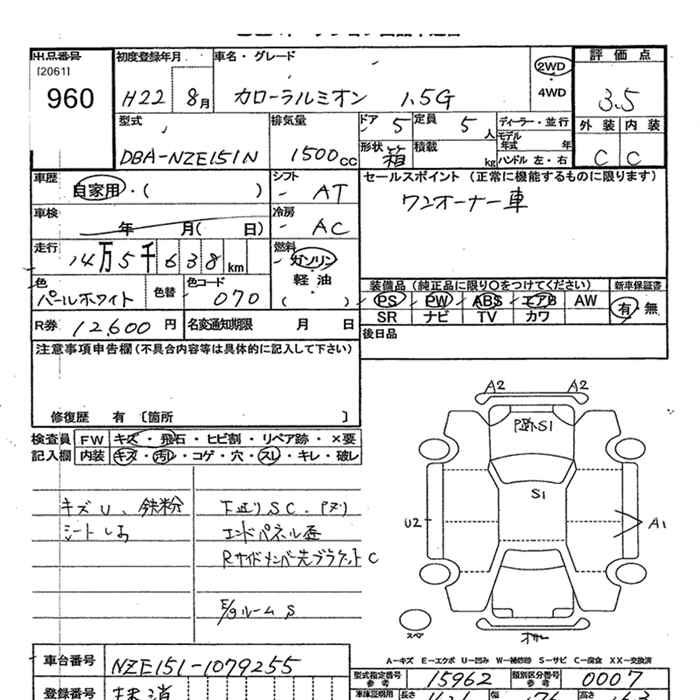 出品番号 初度登録年月 車名・グレード 評価点
[2061]
960
H22 8月 カローラルミオン 1.5G
2WD
4WD
3.5
型式 排気量 ドア 5 定員 5人 ディーラー・並行
モデル年式 年
外装 内装
DBA-NZE151N 1500cc 形状 箱 積載 kg ハンドル 左・右
C C
車歴 自家用・( ) シフト AT
セールスポイント (正常に機能するものに限ります)
ワンオーナー車
車検 年 月( 日) 冷房 AC
走行 14万5千638km 燃料 ガソリン
軽油
( )
色 パールホワイト 色替 色コード 070
装備品(純正品に限り〇をつけてください) 新車保証書
PS PW ABS エアB AW
SR ナビ TV カワ
有・無
R券 12,600円 名変通知期限 月 日
後日品
注意事項申告欄(不具合内容等は具体的に記入して下さい)
修復歴 有 〔箇所 〕
検査員 FW キズ・飛石・ヒビ割・リペア跡・×要
記入欄 内装 キズ・汚レ・コゲ・穴・スレ・キレ・破レ
キズU、鉄粉
下廻りSC、
エンドパネル歪
Rサイドメンバー先ブラケットC
E/gルームS
A2 A2
S1
S1
U2 A1
スペア
A-キズ E-エクボ U-凹み W-補修跡 S-サビ C-腐食 XX-交換済
車台番号 NZE151-1079255
型式指定番号 参考 15962 類別区分番号 参考 0007
登録番号 抹消
車庫証明用 長さ 幅 176 高さ